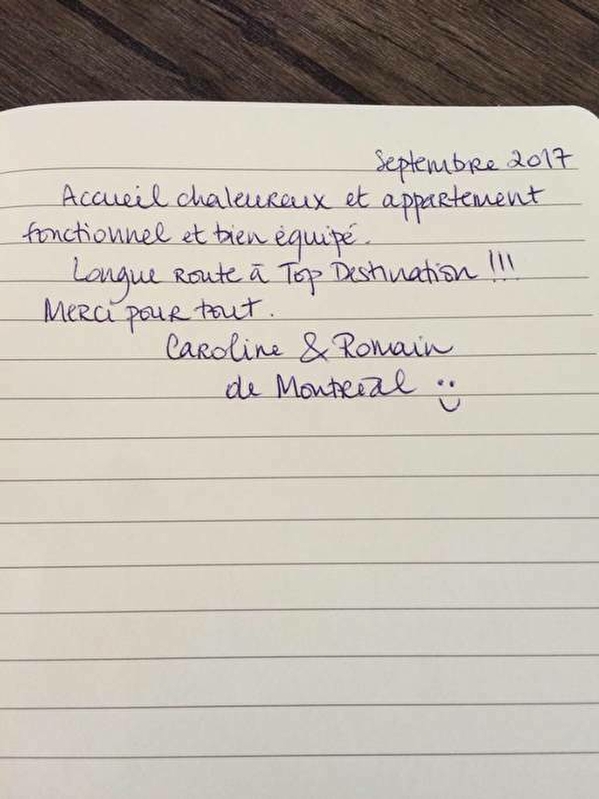 Septembre 2017
Accueil chaleureux et appartement
fonctionnel et bien équipé.
Longue route à Top Destination !!!
Merci pour tout.
Caroline & Romain
de Montréal :)